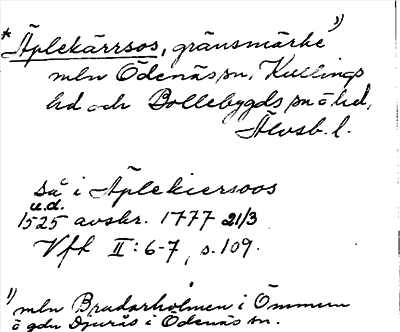 *Äplekärrsos, gränsmärke 1)
mln Ödenäs sn, Kullings
hd och Bollebygds sn o hd,
Älvsb. l.
så i Äplekiersoos
u.d.
1525 avskr. 1777 21/3
Vfk II:6-7, s. 109.
1) mln Bradarholmen i Ömmern
o gdn Djurås i Ödenäs sn.